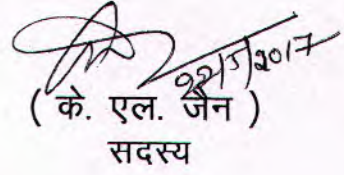 22/5/2017
( के. एल. जैन )
सदस्य